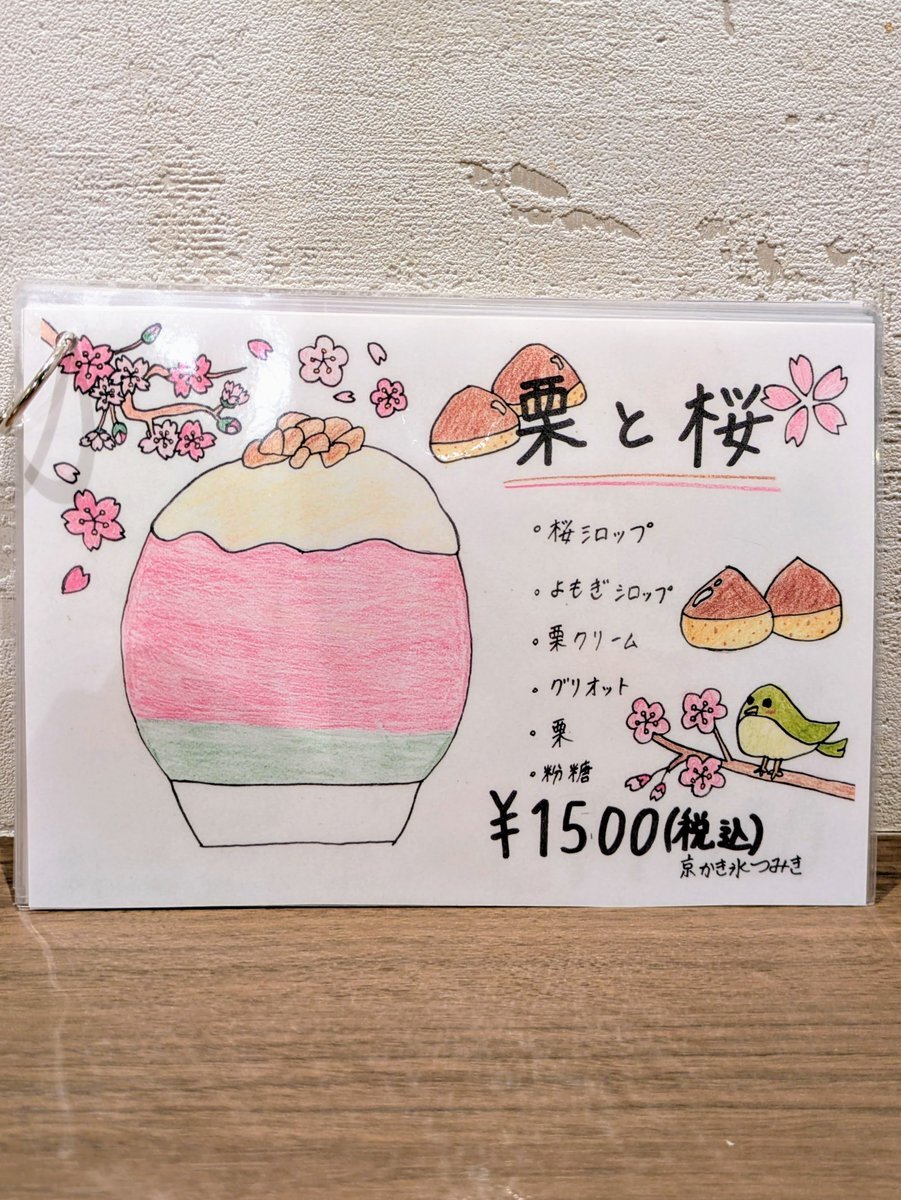 栗と桜
・桜シロップ
・よもぎシロップ
・栗クリーム
・グリオット
・栗
・粉糖
¥1500(税込)
京かき氷つみき